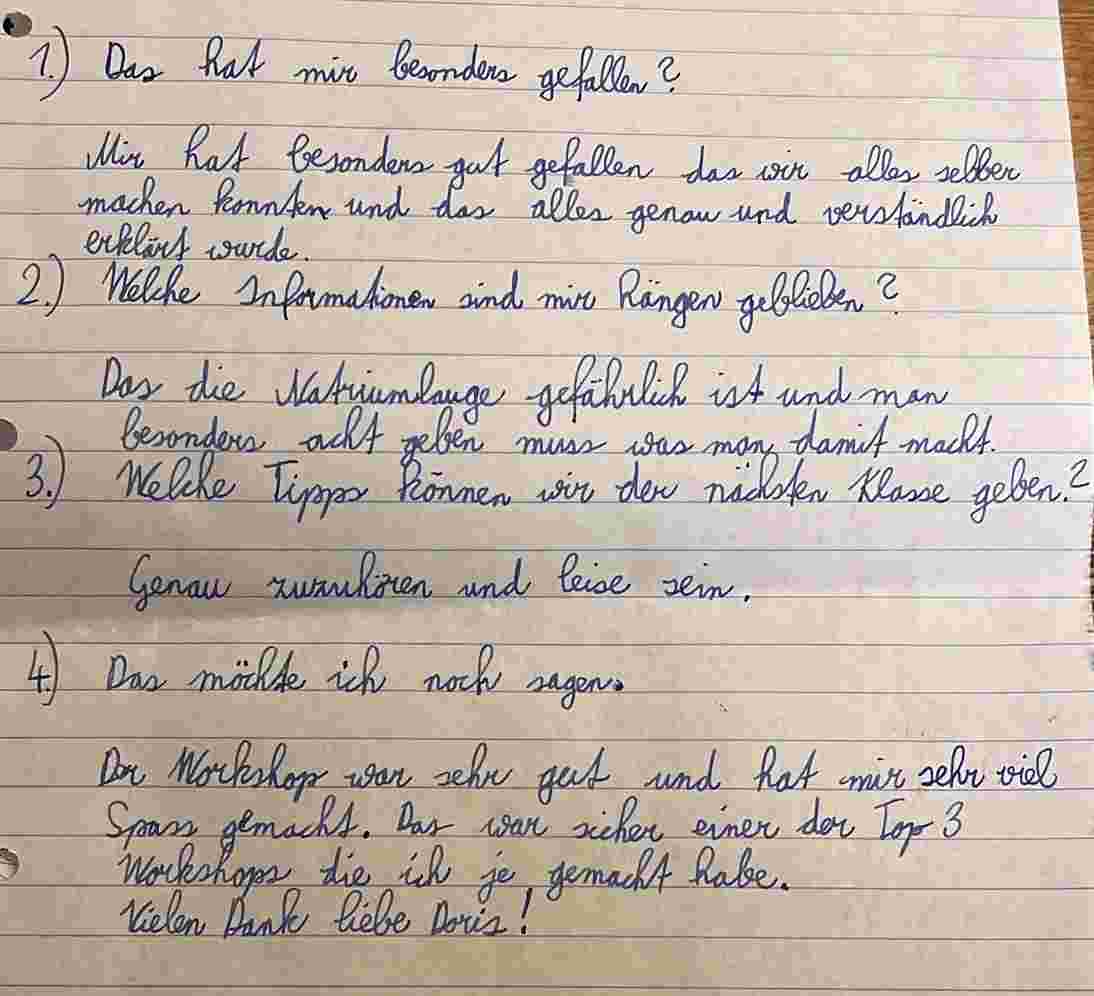 1.) Das hat mir besonders gefallen?
Mir hat besonders gut gefallen das wir alles selber
machen konnten und das alles genau und verständlich
erklärt wurde.
2.) Welche Informationen sind mir hängen geblieben?
Das die Natriumlauge gefährlich ist und man
besonders acht geben muss was man damit macht.
3.) Welche Tipps können wir der nächsten Klasse geben.?
Genau zuzuhören und leise sein.
4.) Das möchte ich noch sagen.
Der Workshop war sehr gut und hat mir sehr viel
Spass gemacht. Das war sicher einer der Top 3
Workshops die ich je gemacht habe.
Vielen Dank liebe Doris!